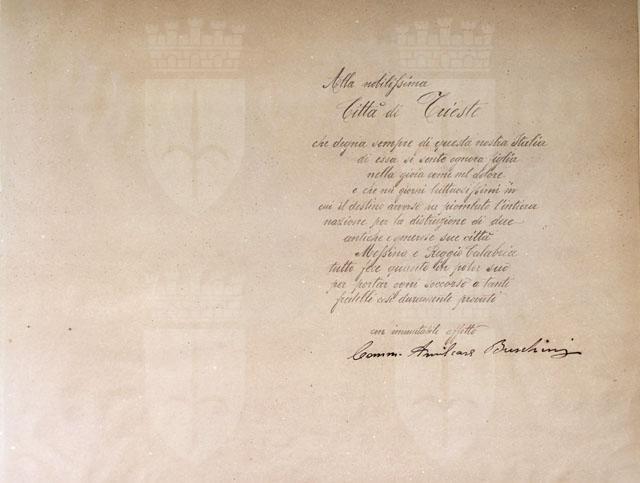 Alla nobilissima
Città di Trieste
che degna sempre di questa nostra Italia
di essa si sente ognora figlia
nella gioia come nel dolore
e che nei giorni luttuosissimi in
cui il destino avverso ha piombato l'intiera
nazione per la distruzione di due
antiche e generose sue città
Messina e Reggio Calabria
tutto fece quanto in poter suo
per portar ogni soccorso a tanti
fratelli così duramente provati
con immutabile affetto
Comm. Amilcare